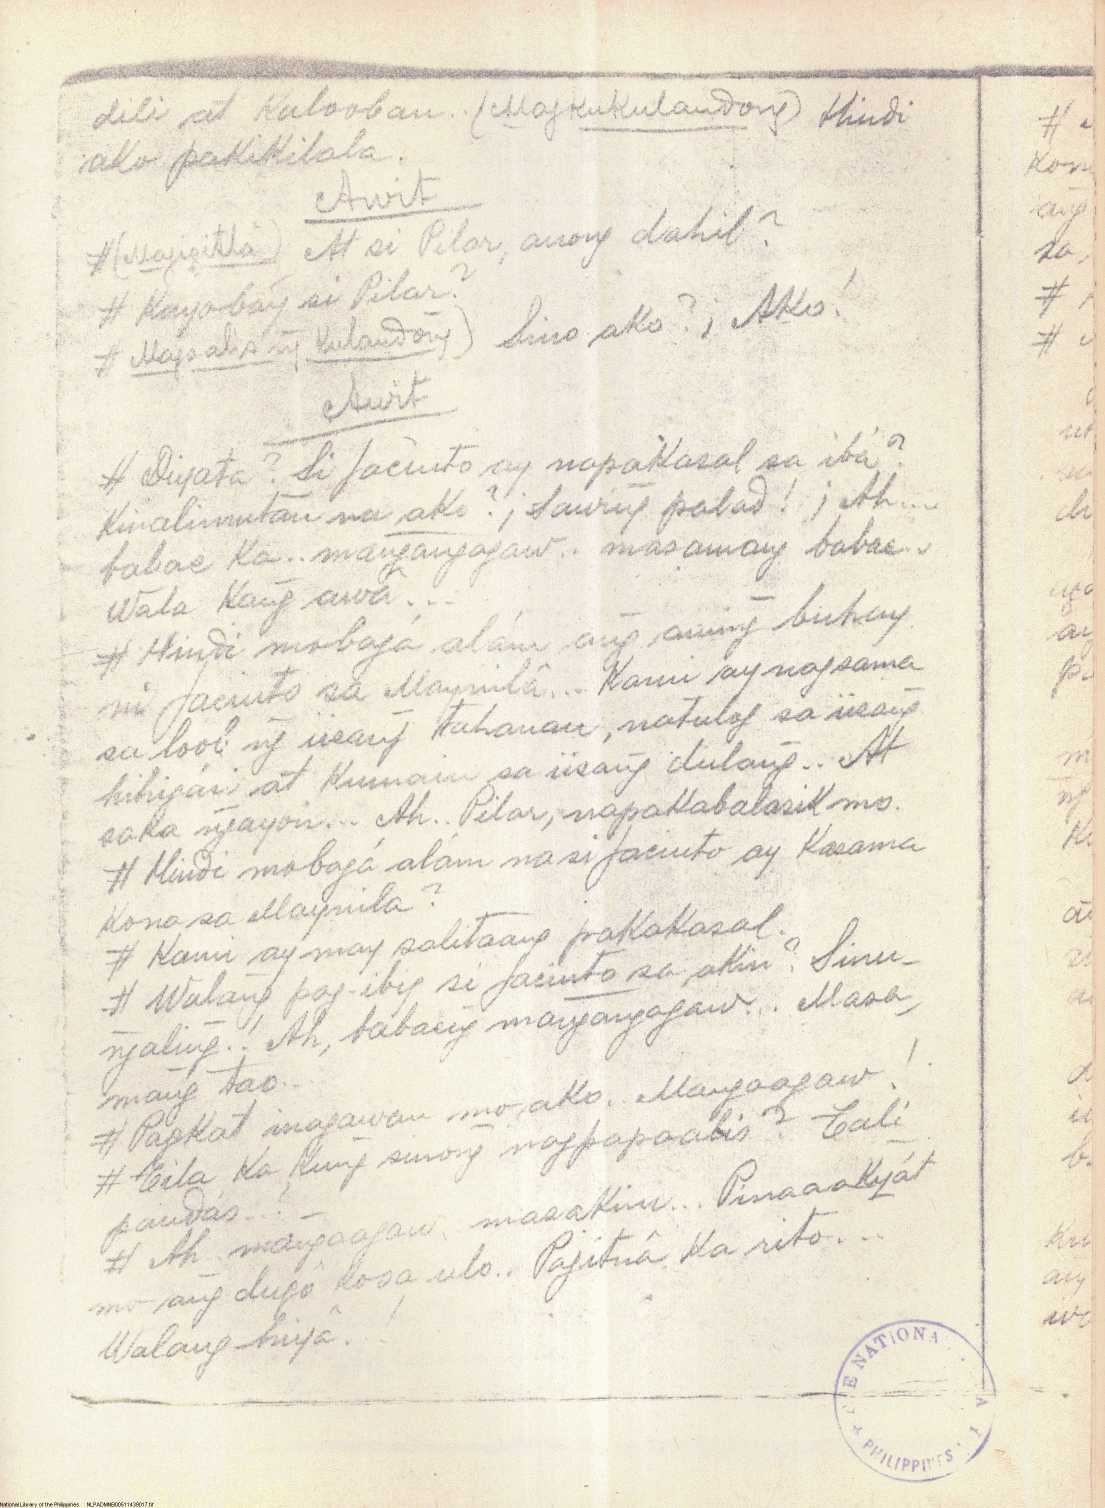 dili at kalooban.. (Magkukulandong) Hindi
ako pakikilala.
Awit
# (Magigitla) At si Pilar, anong dahil?
# Kayo bang̃ si Pilar?
# Magsalis ng̃ kulandong̃) Sino ako? ¡ Ako!
Awit
# Diyata? Si Jacinto ay napakasal sa ibá?
kinalimutan na ako? ¡ Sawing̃ palad! ¡ Ah...
babae ka.. mang̃ang̃agaw.. masamang babae..
Wala kang̃ awâ...
# Hindi mo bagá alám ang̃ aming̃ buhay
ni Jacinto sa Maynilâ... Kami ay nagsama
sa loob ng̃ iisang̃ tahanan, natulog sa iisang̃
hihigán at kumain sa iisang̃ dulang̃.. At
saka ng̃ayon... Ah.. Pilar, napakabalasik mo.
# Hindi mo bagá alám na si Jacinto ay kasama
ko na sa Maynila?
# Kami ay may salitaang pakakasal.
# Walang̃ pag-ibig si Jacinto sa akin? Sinu-
ng̃aling̃.! Ah, babaeng̃ mang̃ang̃agaw... Masa,
mang̃ tao..
# Pagkat inagawan mo ako. Mang̃aagaw!
# Tila ka kung̃ sinong̃ nagpapaalis? Tali
pandás...!
# Ah mang̃aagaw. masakim... Pinaaakyát
mo ang̃ dugô ko sa ulo.. Pagitnâ ka rito...
Walang hiyâ.!
#
#
#
NATIONA
PHILIPPINES
National Library of the Philippines NLPADMNB00511439017.tif